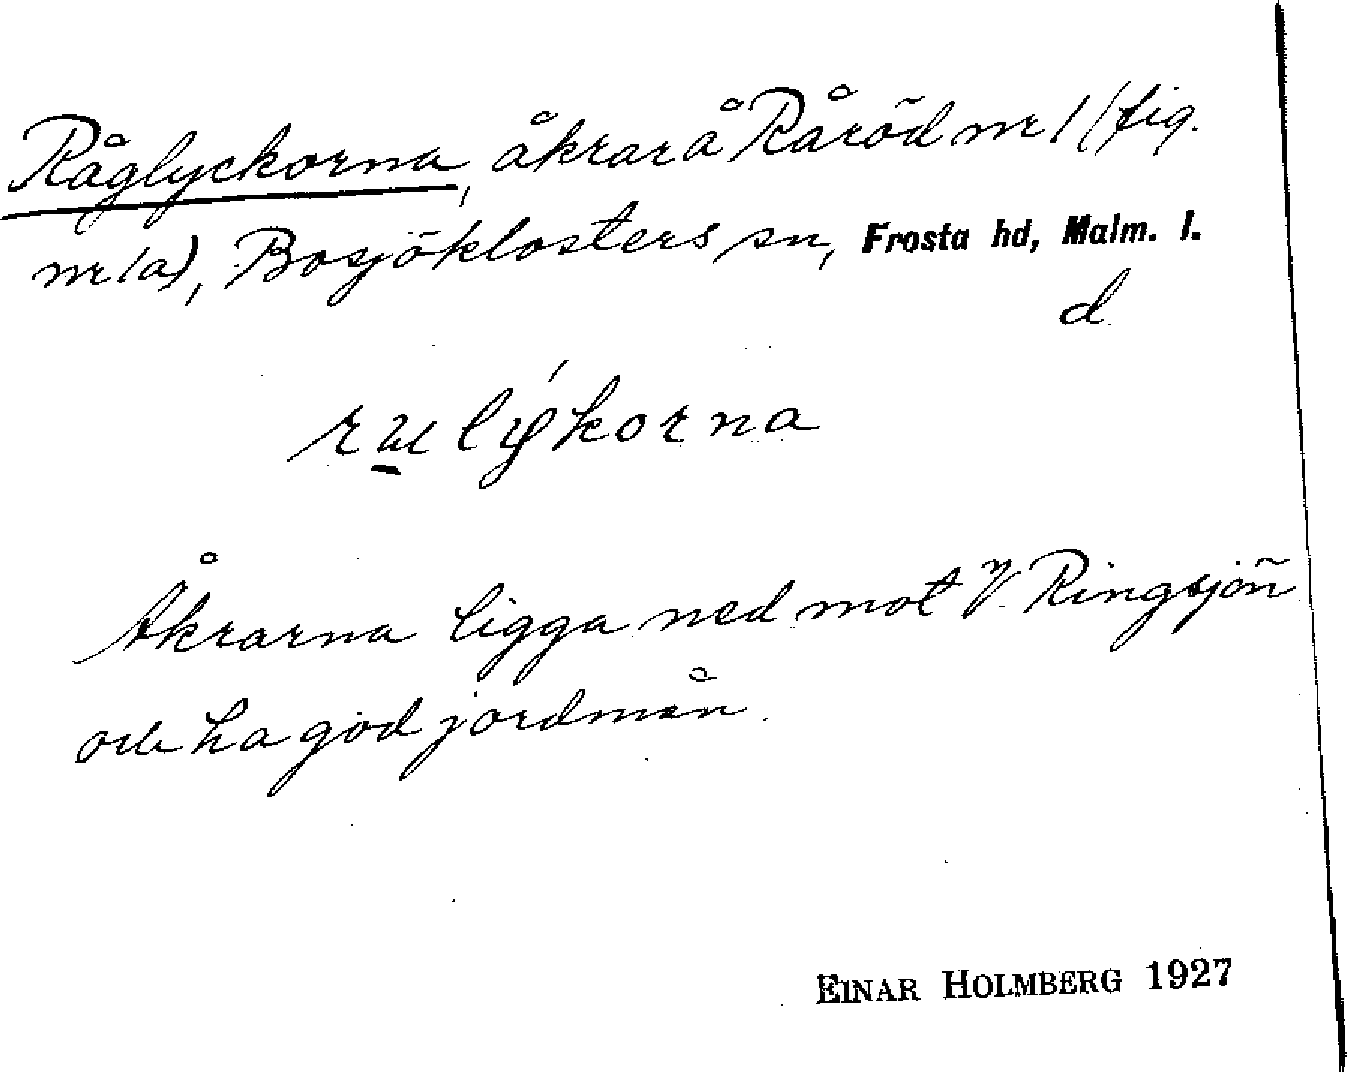 Råglyckorna, åkrar å Råröd nr 1 (fig.
nr 1a), Bosjöklosters sn, Frosta hd, Malm. l.
d
Åkrarna ligga ned mot V. Ringsjön
och ha god jordmån.
EINAR HOLMBERG 1927